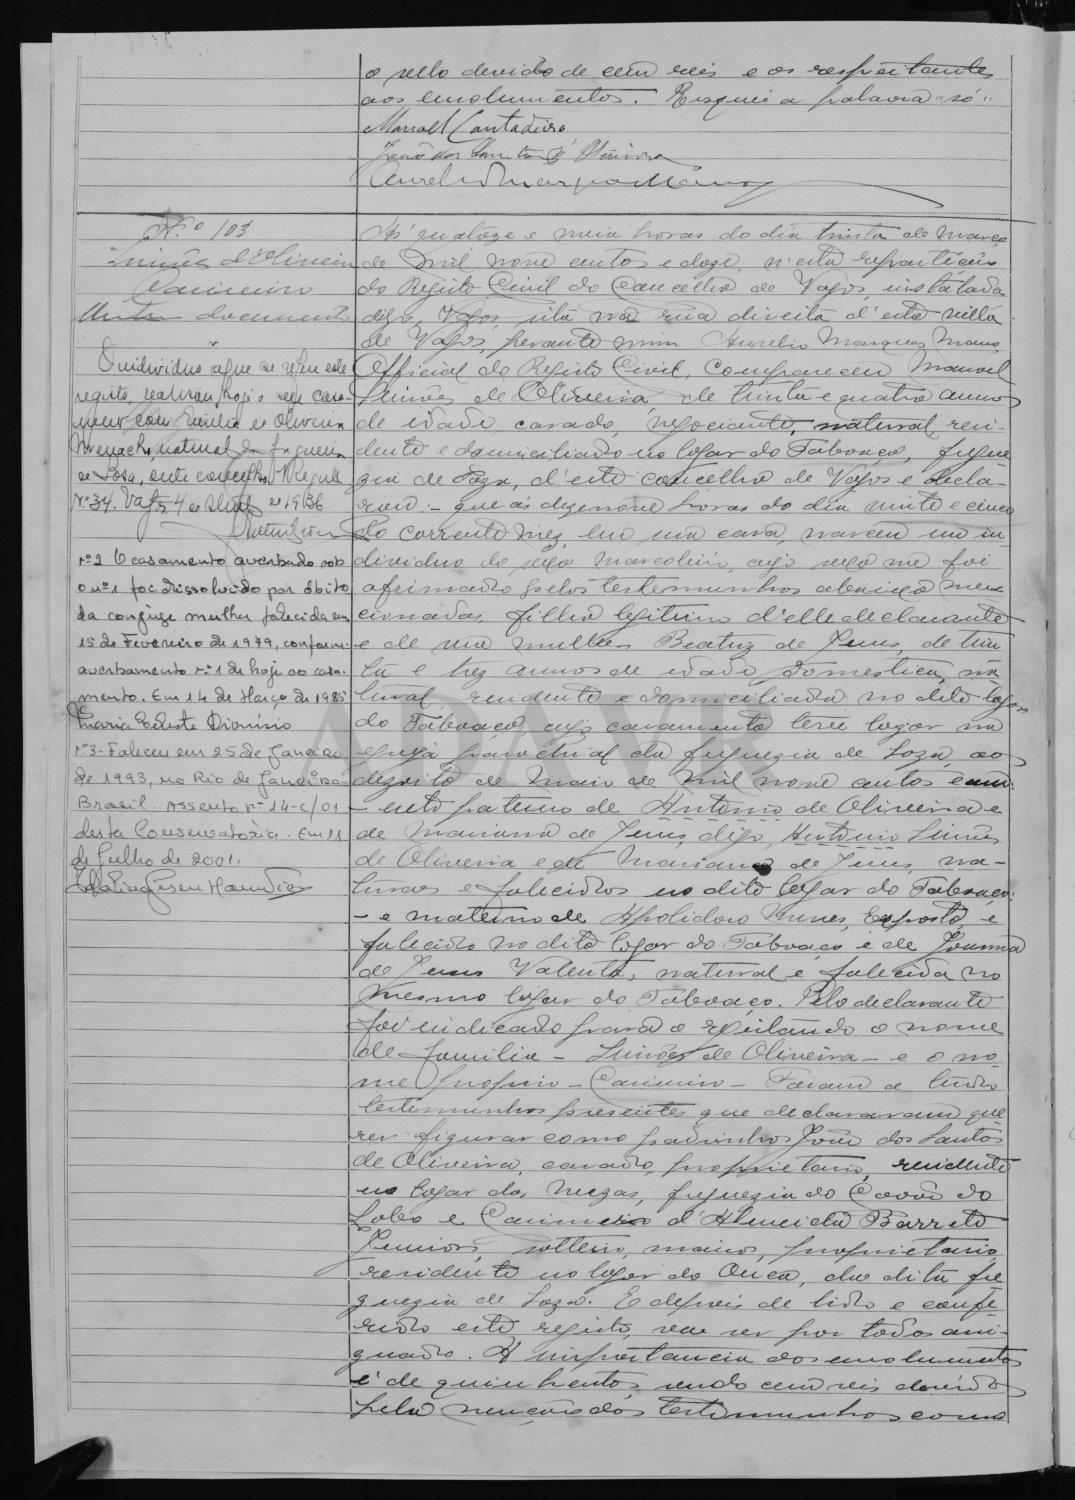 o sello devido de cem reis e os respeitantes
aos emolumentos. Risquei a palavra "só"
Manoel Cantadeiro
João dos Santos d'Oliveira
Aurelio Marques Mano
N.º 103
Simões d'Oliveira
Casimiro
documento
O individuo a que se refere este
registo, realisou hoje o seu casa-
mento com Emilia de Oliveira
natural da freguesia
de Sosa, deste concelho. Registo
Nº 34. Vagos, 4 de de 1936
nº 2 O casamento averbado sob
o nº 1 foi dissolvido por óbito
da conjuge mulher falecida em
15 de Fevereiro de 1979, conforme
averbamento nº 1 de hoje ao casa-
mento. Em 14 de Março de 1985
Maria Celeste Dionisio
nº 3 - Faleceu em 25 de Janeiro
de 1993, no Rio de Janeiro
Brasil. Assento nº 14-C/01
desta Conservatória. Em 11
de Julho de 2001.
Ás quatorze e meia horas do dia trinta de Março
de mil nove centos e doze, n'esta repartição
do Registo Civil do Concelho de Vagos, installada
digo, Vagos, sita na rua direita d'esta villa
de Vagos, perante mim Aurelio Marques Mano,
Official do Registo Civil, compareceu Manoel
Simões de Oliveira, de trinta e quatro annos
de idade, casado, negociante, natural resi-
dente e domiciliado no logar do Taboaço, fregue-
zia de Soza, d'este concelho de Vagos e decla-
rou: - que ás dezenove horas do dia vinte e cinco
do corrente mez, em sua casa, nasceu um in-
dividuo do sexo masculino, cujo sexo me foi
afirmado pelas testemunhas abaixo men-
cionadas, filho legitimo d'elle declarante
e de sua mulher Beatriz de Jesus, de trin-
ta e trez annos de idade, domestica, na-
tural, residente e domiciliada no dito logar
do Taboaço, cujo casamento teve logar na
egreja parochial da freguezia de Soza, aos
dezoito de Maio de mil nove centos e um:
- neto paterno de Antonio de Oliveira e
de Marianna de Jesus, digo, Antonio Simões
de Oliveira e de Marianna de Jesus, na-
turaes e falecidos no dito logar do Taboaço:
- e materno de Apolidoro Nunes, Exposto, e
falecido no dito logar do Taboaço e de Joanna
de Jesus Valente, natural e falecida no
mesmo logar do Taboaço. Pelo declarante
foi indicado para o registando o nome
de familia - Simões de Oliveira - e o no-
me proprio - Casimiro - Foram a tudo
testemunhas presentes que declararam que-
rer figurar como padrinhos João dos Santos
de Oliveira, casado, proprietario, residente
no logar das Mezas, freguezia do Covão do
Lobo e Casimiro d'Almeida Barreto
Junior, solteiro, maior, proprietario
residente no logar de Ouca, da dita fre-
guezia de Soza. E depois de lido e confe-
rido este registo, vae ser por todos assi-
gnado. A importancia dos emolumentos
é de quinhentos, sendo cem reis devidos
pela menção das testemunhas como